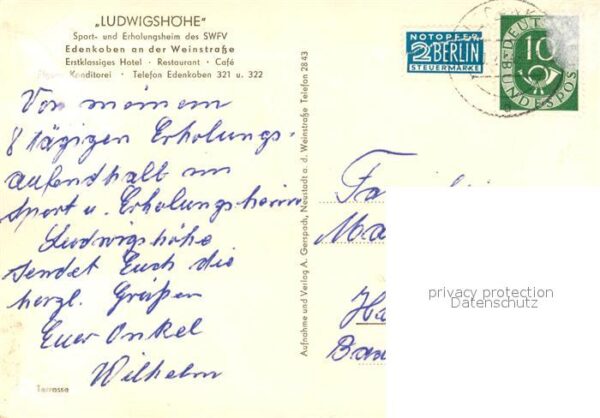 „LUDWIGSHÖHE“
Sport- und Erholungsheim des SWFV
Edenkoben an der Weinstraße
Erstklassiges Hotel · Restaurant · Café
Konditorei · Telefon Edenkoben 321 u. 322
Von meinem
8 tägigen Erholungs-
aufendhalt im
Sport u. Erholungsheim
Ludwigshöhe
sendet Euch die
herzl. Grüßen
Euer Onkel
Wilhelm
Terrasse
Aufnahme und Verlag A. Gerspach, Neustadt a. d. Weinstraße Telefon 2843
NOTOPFER
2 BERLIN
STEUERMARKE
10
DEUTSCHE
BUNDESPOS
Fa
Ma
Ha
Bad
privacy protection
Datenschutz